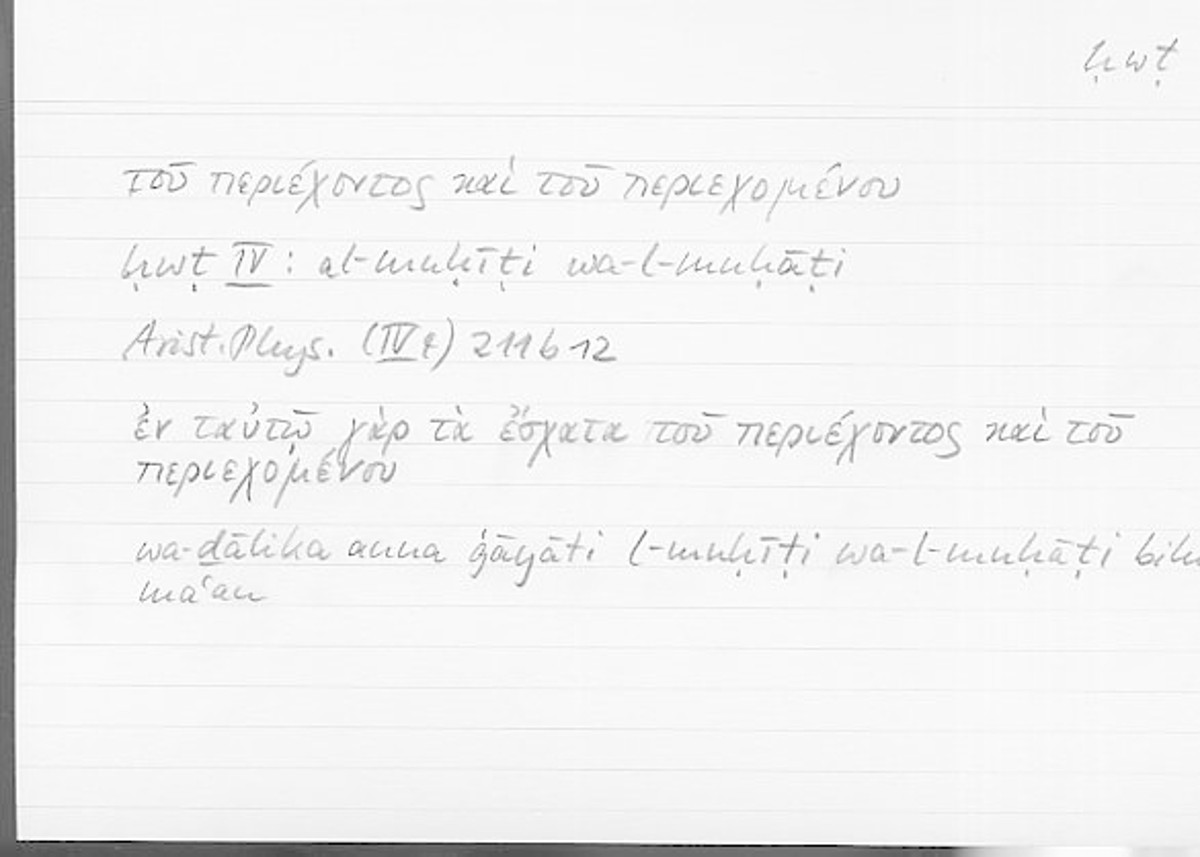 ḥwṭ
τοῦ περιέχοντος καὶ τοῦ περιεχομένου
ḥwṭ IV : al-muḥīṭi wa-l-muḥāṭi
Arist. Phys. (IV 4) 211 b 12
ἐν ταὐτῷ γὰρ τὰ ἔσχατα τοῦ περιέχοντος καὶ τοῦ
περιεχομένου
wa-ḏālika anna ġāyāti l-muḥīṭi wa-l-muḥāṭi
maʿan